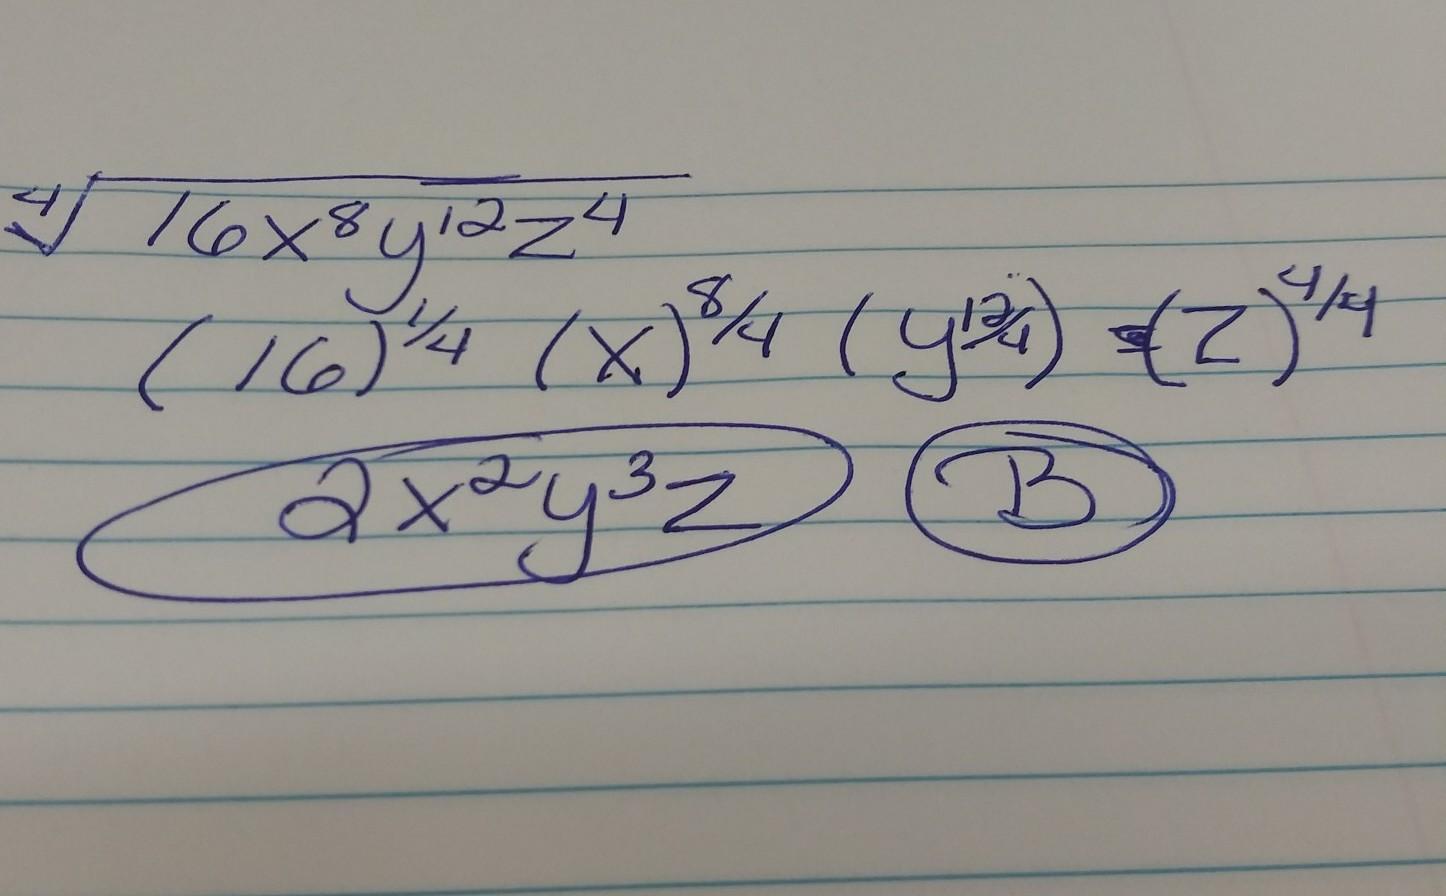 ∜16x⁸y¹²z⁴
(16)^1/4 (x)^8/4 (y^12/4) (z)^4/4
2x²y³z B